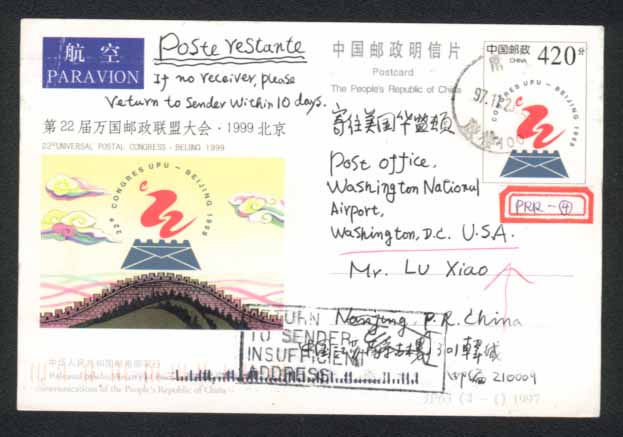 航空
PAR AVION
Poste restante
If no receiver, please
return to Sender within 10 days.
第22届万国邮政联盟大会·1999 北京
22ND UNIVERSAL POSTAL CONGRESS · BEIJING 1999
22e CONGRES UPU – BEIJING 1999
中国邮政明信片
Postcard
The People's Republic of China
中国邮政
CHINA
420分
97.11.2
22e CONGRES UPU – BEIJING 1999
寄往美国华盛顿
Post office,
Washington National
Airport,
Washington, D.C. U.S.A.
PRR-④
Mr. Lu Xiao
RETURN
TO SENDER
INSUFFICIENT
ADDRESS
Nanjing, P.R. China
301 韩
邮编 210009
中华人民共和国邮电部发行
communications of the People's Republic of China
1997